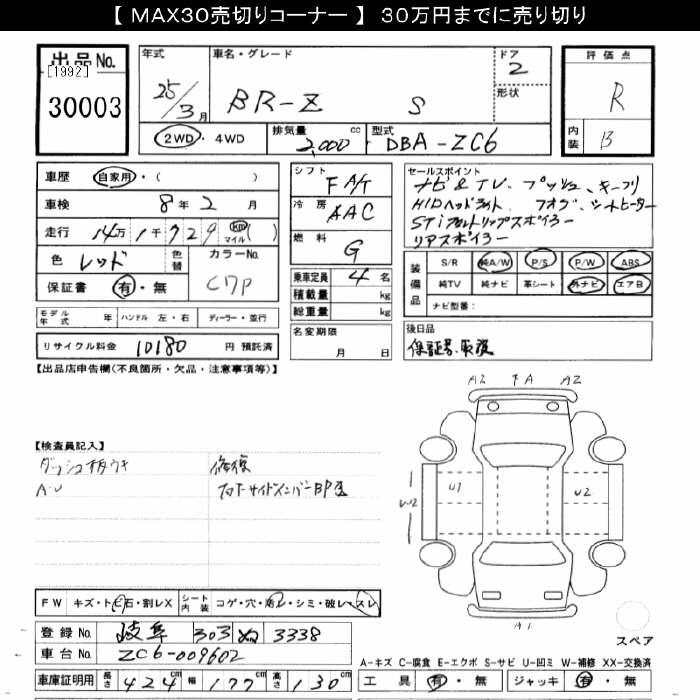 【 MAX30売切りコーナー 】 30万円までに売り切り
出品No.
[1992]
30003
年式 25/3月
車名・グレード
BR-Z S
ドア 2
形状
2WD・4WD
排気量 2,000 cc
型式 DBA-ZC6
評価点 R
内装 B
車歴 自家用・( )
車検 8年2月
走行 14万1千929 km マイル ( )
色 レッド 色替
カラーNo. C7P
保証書 有・無
モデル年式 年 ハンドル 左・右 ディーラー・並行
リサイクル料金 10180 円 預託済
シフト FA/T
冷房 AAC
燃料 G
乗車定員 4 名
積載量 kg
総重量 kg
名変期限 月 日
セールスポイント
ナビ&TV、プッシュ、キーフリ
HIDヘッドライト フォグ、シートヒーター
STiフロントリップスポイラー
リアスポイラー
装備品 S/R 純A/W P/S P/W ABS
純TV 純ナビ 革シート 外ナビ エアB
ナビ型番:
後日品
保証書、取説
【出品店申告欄(不良箇所・欠品・注意事項等)】
A2 FA A2
【検査員記入】
ダッシュ
A-U
修復
W2 U1 U2
A1
スペア
FW キズ・トビ石・割レX シート内装 コゲ・穴・切レ・シミ・破レ・スレ
登録No. 岐阜 303 ぬ 3338
車台No. ZC6-009602
車庫証明用 長さ 424 cm 幅 177 cm 高さ 130 cm
A-キズ C-腐食 E-エクボ S-サビ U-凹ミ W-補修 XX-交換済
工具 有・無 ジャッキ 有・無